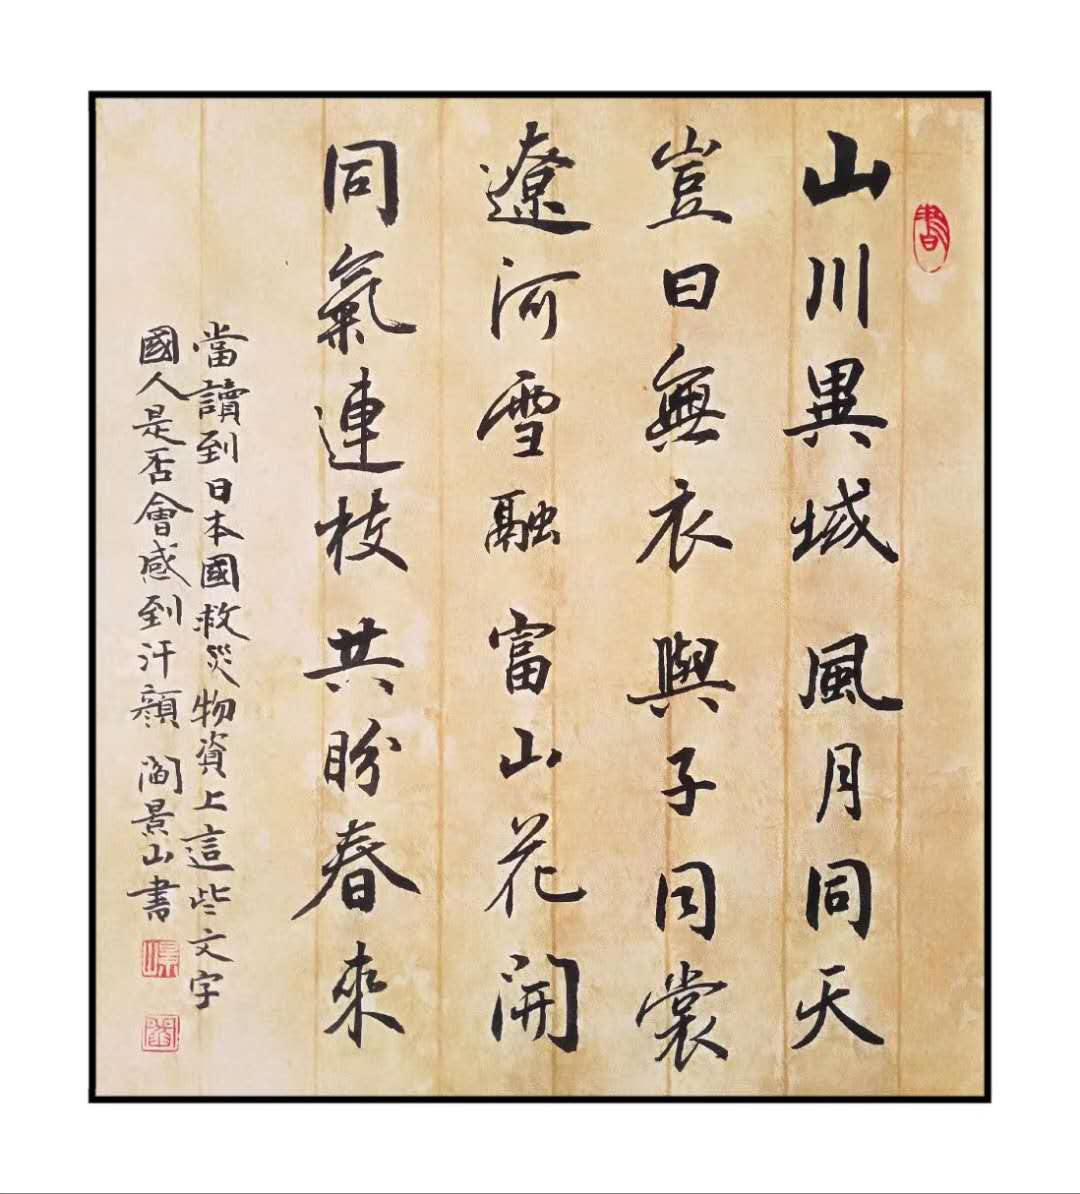 山川異域風月同天
豈曰無衣與子同裳
遼河雪融富山花開
同氣連枝共盼春來
當讀到日本國救災物資上這些文字
國人是否會感到汗顔閻景山書
書
景山
閻